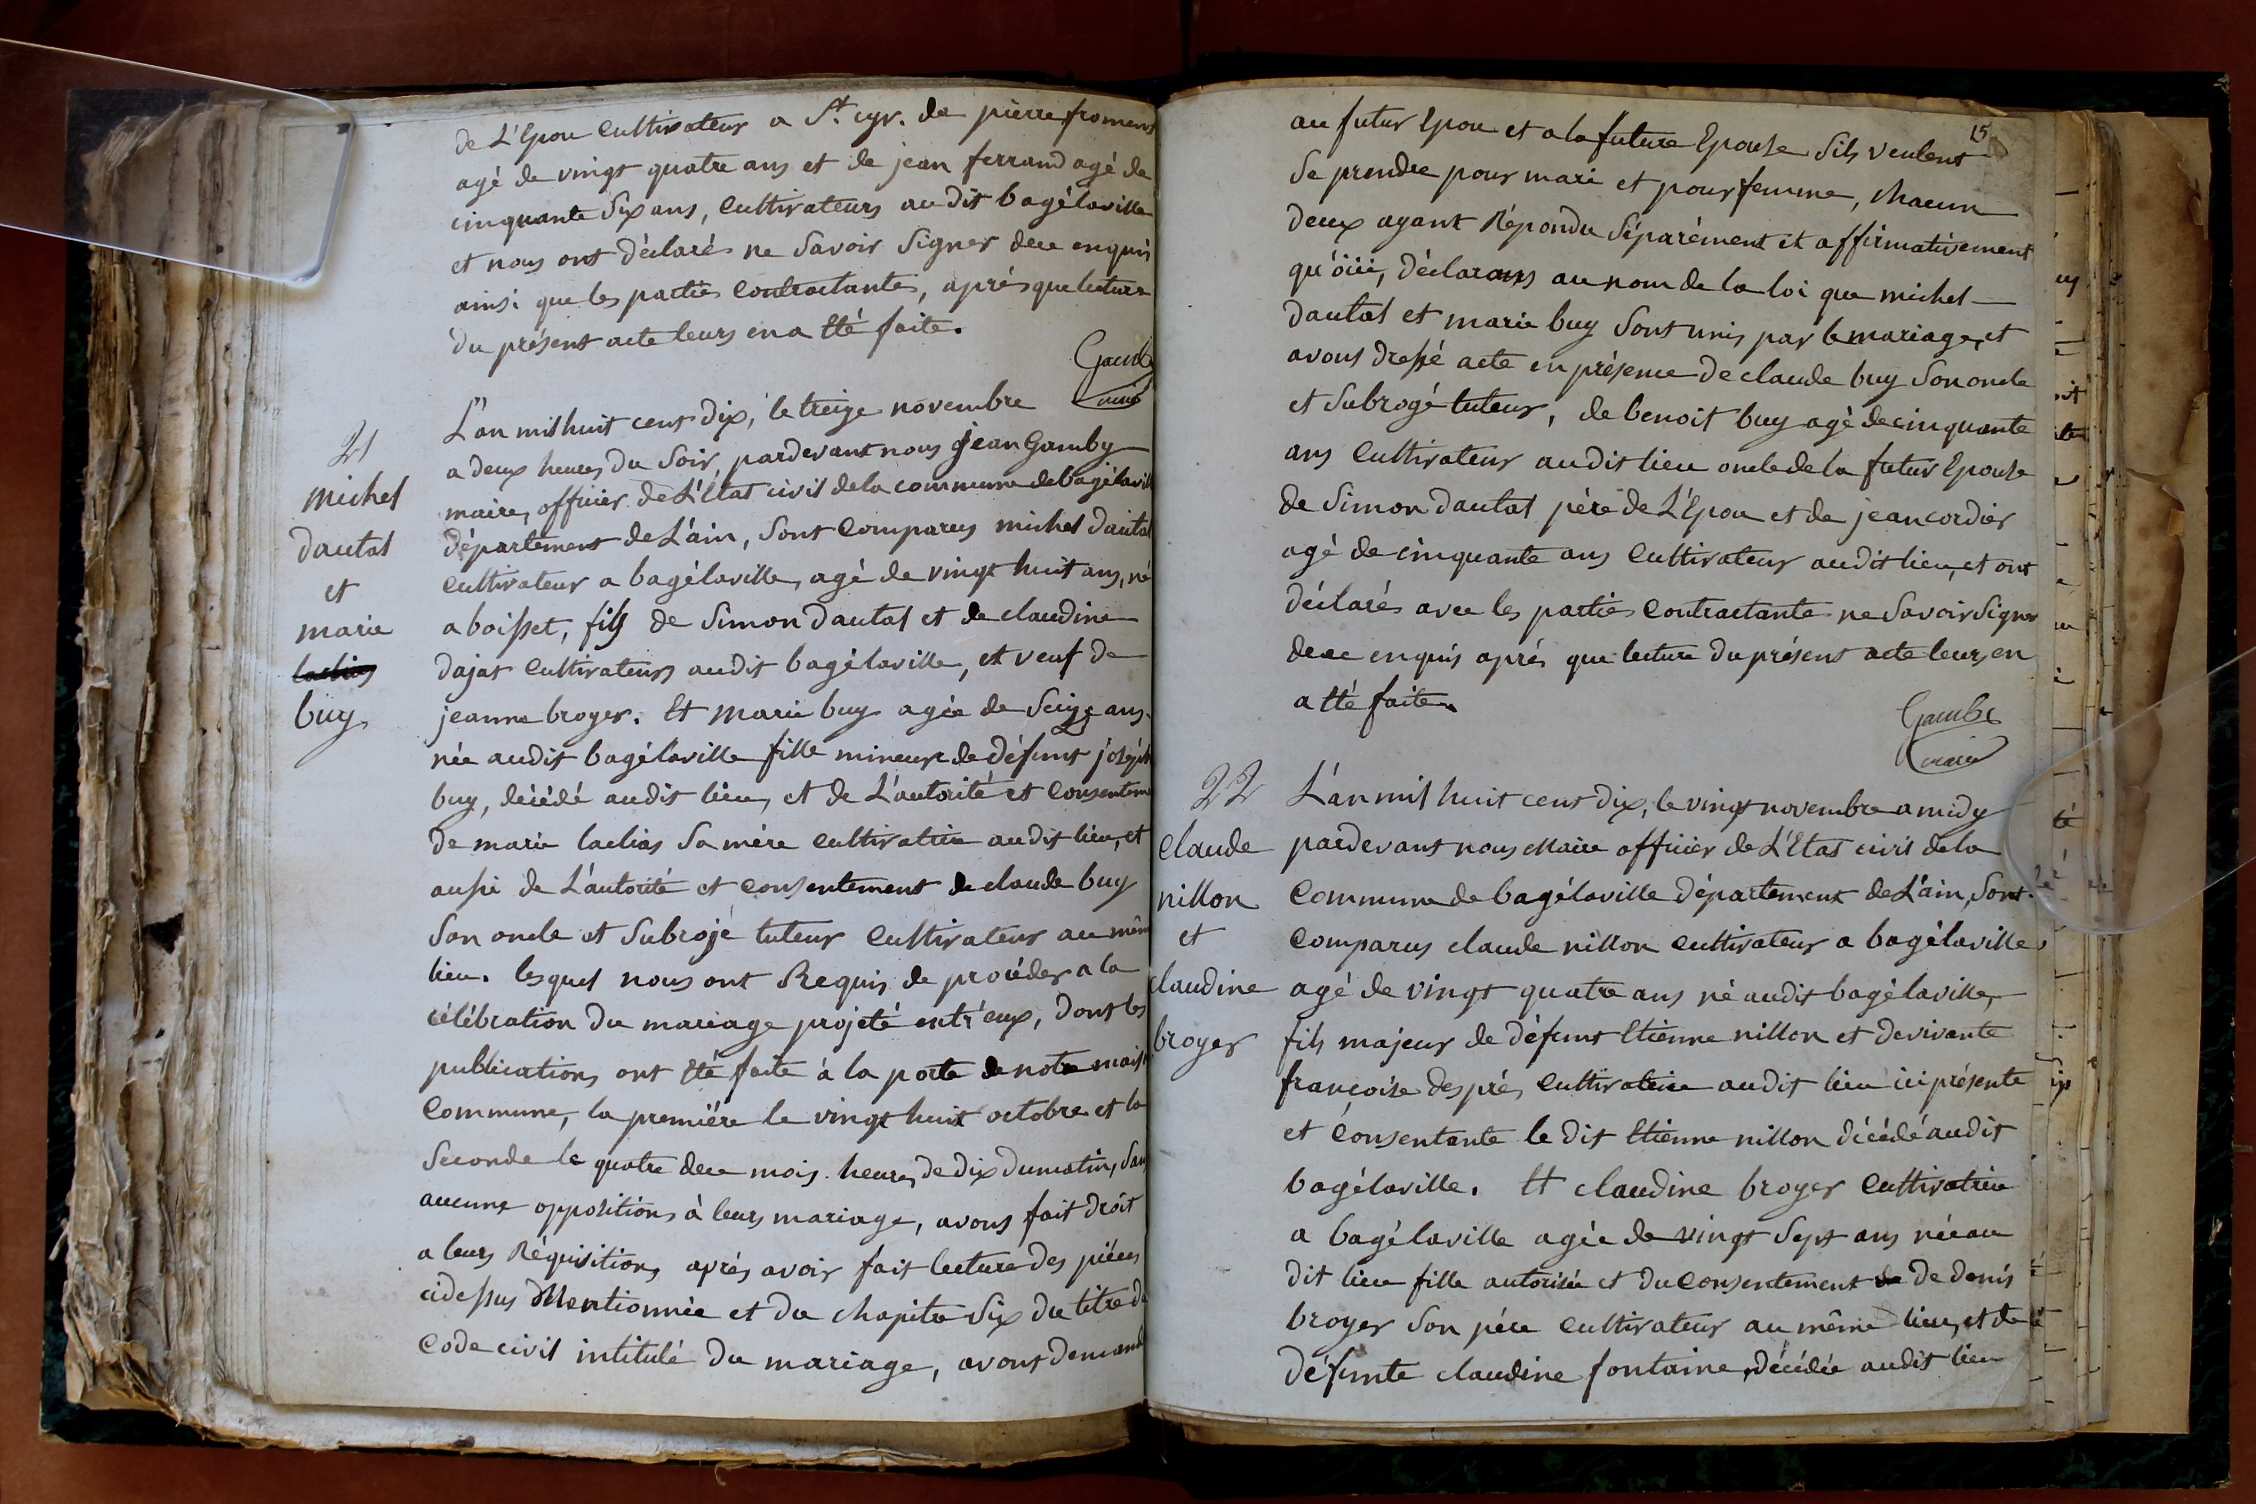 de L'Epou Cultivateur a St. cyr. de pierre froment
agé de vingt quatre ans et de jean ferrand agé de
cinquante Six ans, Cultivateurs au dit bagélaville
et nous ont déclarés ne Savoir Signer dece enquis
ainsi que les parties Contractantes, aprés que lecture
du présent acte leurs en a Eté faite.
Gamby
maire
21
michel
dautal
et
marie
buy
L'an mil huit cent dix, le treize novembre
a deux heures du Soir, pardevant nous jean Gamby
maire, officier de L'Etat civil de la commune de bagélaville
département de L'ain, Sont Comparus michel dautal
Cultivateur a bagélaville, agé de vingt huit ans, né
a boisset, fils de Simon dautal et de claudine
dajat Cultivateurs audit bagélaville, et veuf de
jeanne broyer. Et Marie buy agée de Seize ans
née audit bagélaville fille mineure de défunt joseph
buy, décédé audit lieu, et de L'autorité et Consentem
de marie laclias Sa mére Cultivatrice audit lieu, et
aussi de L'autorité et Consentement de claude buy
Son oncle et Subrojé tuteur Cultivateur au même
lieu. lesquel nous ont Requis de procéder a la
célébration du mariage projeté entr'eux, dont les
publications ont Eté faite à la porte de notre maison
Commune, la premiére le vingt huit octobre et la
Seconde le quatre dece mois heures de dix du matin, Sans
aucune oppositions à leurs mariage, avons fait droit
a leurs Réquisitions aprés avoir fait lecture des piéces
cidessus Mentionnée et du chapitre Six du titre du
Code civil intitulé du mariage, avons demandé
15
au futur Epou et a la future Epouse Sils veulent
Se prendre pour mari et pour femme, chacun
deux ayant Répondu Séparément et affirmativement
qu'öüi, déclarons au nom de la loi que michel
dautal et marie buy Sont unis par le mariage, et
avons dressé acte en présence de claude buy Son oncle
et Subrogé tuteur, de benoit buy agé de cinquante
ans Cultivateur audit lieu oncle de la futur Epouse
de Simon dautal pére de L'Epou et de jean cordier
agé de cinquante ans Cultivateur audit lieu, et ont
déclarés avec les parties Contractante ne Savoir Signer
dece enquis aprés que lecture du présent acte leurs en
a Eté faite.
Gamby
maire
22
Claude
nillon
et
claudine
broyer
L'an mil huit cent dix, le vingt novembre a midy
pardevant nous Maire officier de L'Etat civil de la
Commune de bagélaville département de L'ain, Sont
Comparus claude nillon Cultivateur a bagélaville
agé de vingt quatre ans né audit bagélaville,
fils majeur de défunt Etienne nillon et de vivante
françoise després Cultivatrice audit lieu ici présente
et Consentante le dit Etienne nillon décédé audit
bagélaville. Et claudine broyer Cultivatrice
a bagélaville agée de vingt Sept ans née au
dit lieu fille autorisée et du Consentement de denis
broyer Son pére Cultivateur au même lieu, et de
défunte claudine fontaine décédée audit lieu